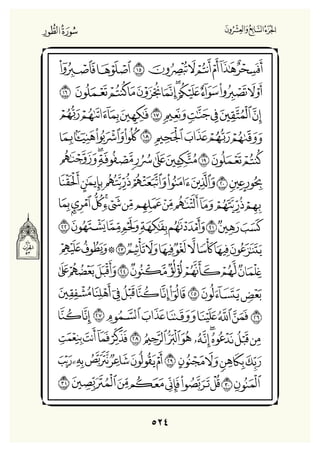 الجزء السابع والعشرون
سورة الطور
أَفَسِحْرٌ هَٰذَآ أَمْ أَنتُمْ لَا تُبْصِرُونَ ١٥ ٱصْلَوْهَا فَٱصْبِرُوٓا۟
أَوْ لَا تَصْبِرُوا۟ سَوَآءٌ عَلَيْكُمْ ۖ إِنَّمَا تُجْزَوْنَ مَا كُنتُمْ تَعْمَلُونَ ١٦
إِنَّ ٱلْمُتَّقِينَ فِى جَنَّٰتٍ وَنَعِيمٍ ١٧ فَٰكِهِينَ بِمَآ ءَاتَىٰهُمْ رَبُّهُمْ
وَوَقَىٰهُمْ رَبُّهُمْ عَذَابَ ٱلْجَحِيمِ ١٨ كُلُوا۟ وَٱشْرَبُوا۟ هَنِيٓـًٔۢا بِمَا
كُنتُمْ تَعْمَلُونَ ١٩ مُتَّكِـِٔينَ عَلَىٰ سُرُرٍ مَّصْفُوفَةٍ ۖ وَزَوَّجْنَٰهُم
بِحُورٍ عِينٍ ٢٠ وَٱلَّذِينَ ءَامَنُوا۟ وَٱتَّبَعَتْهُمْ ذُرِّيَّتُهُم بِإِيمَٰنٍ أَلْحَقْنَا
بِهِمْ ذُرِّيَّتَهُمْ وَمَآ أَلَتْنَٰهُم مِّنْ عَمَلِهِم مِّن شَىْءٍ ۚ كُلُّ ٱمْرِئٍۭ بِمَا
كَسَبَ رَهِينٌ ٢١ وَأَمْدَدْنَٰهُم بِفَٰكِهَةٍ وَلَحْمٍ مِّمَّا يَشْتَهُونَ ٢٢
يَتَنَٰزَعُونَ فِيهَا كَأْسًا لَّا لَغْوٌ فِيهَا وَلَا تَأْثِيمٌ ٢٣ ۞ وَيَطُوفُ عَلَيْهِمْ
غِلْمَانٌ لَّهُمْ كَأَنَّهُمْ لُؤْلُؤٌ مَّكْنُونٌ ٢٤ وَأَقْبَلَ بَعْضُهُمْ عَلَىٰ
بَعْضٍ يَتَسَآءَلُونَ ٢٥ قَالُوٓا۟ إِنَّا كُنَّا قَبْلُ فِىٓ أَهْلِنَا مُشْفِقِينَ
٢٦ فَمَنَّ ٱللَّهُ عَلَيْنَا وَوَقَىٰنَا عَذَابَ ٱلسَّمُومِ ٢٧ إِنَّا كُنَّا
مِن قَبْلُ نَدْعُوهُ ۖ إِنَّهُۥ هُوَ ٱلْبَرُّ ٱلرَّحِيمُ ٢٨ فَذَكِّرْ فَمَآ أَنتَ بِنِعْمَتِ
رَبِّكَ بِكَاهِنٍ وَلَا مَجْنُونٍ ٢٩ أَمْ يَقُولُونَ شَاعِرٌ نَّتَرَبَّصُ بِهِۦ رَيْبَ
ٱلْمَنُونِ ٣٠ قُلْ تَرَبَّصُوا۟ فَإِنِّى مَعَكُم مِّنَ ٱلْمُتَرَبِّصِينَ ٣١
٥٢٤